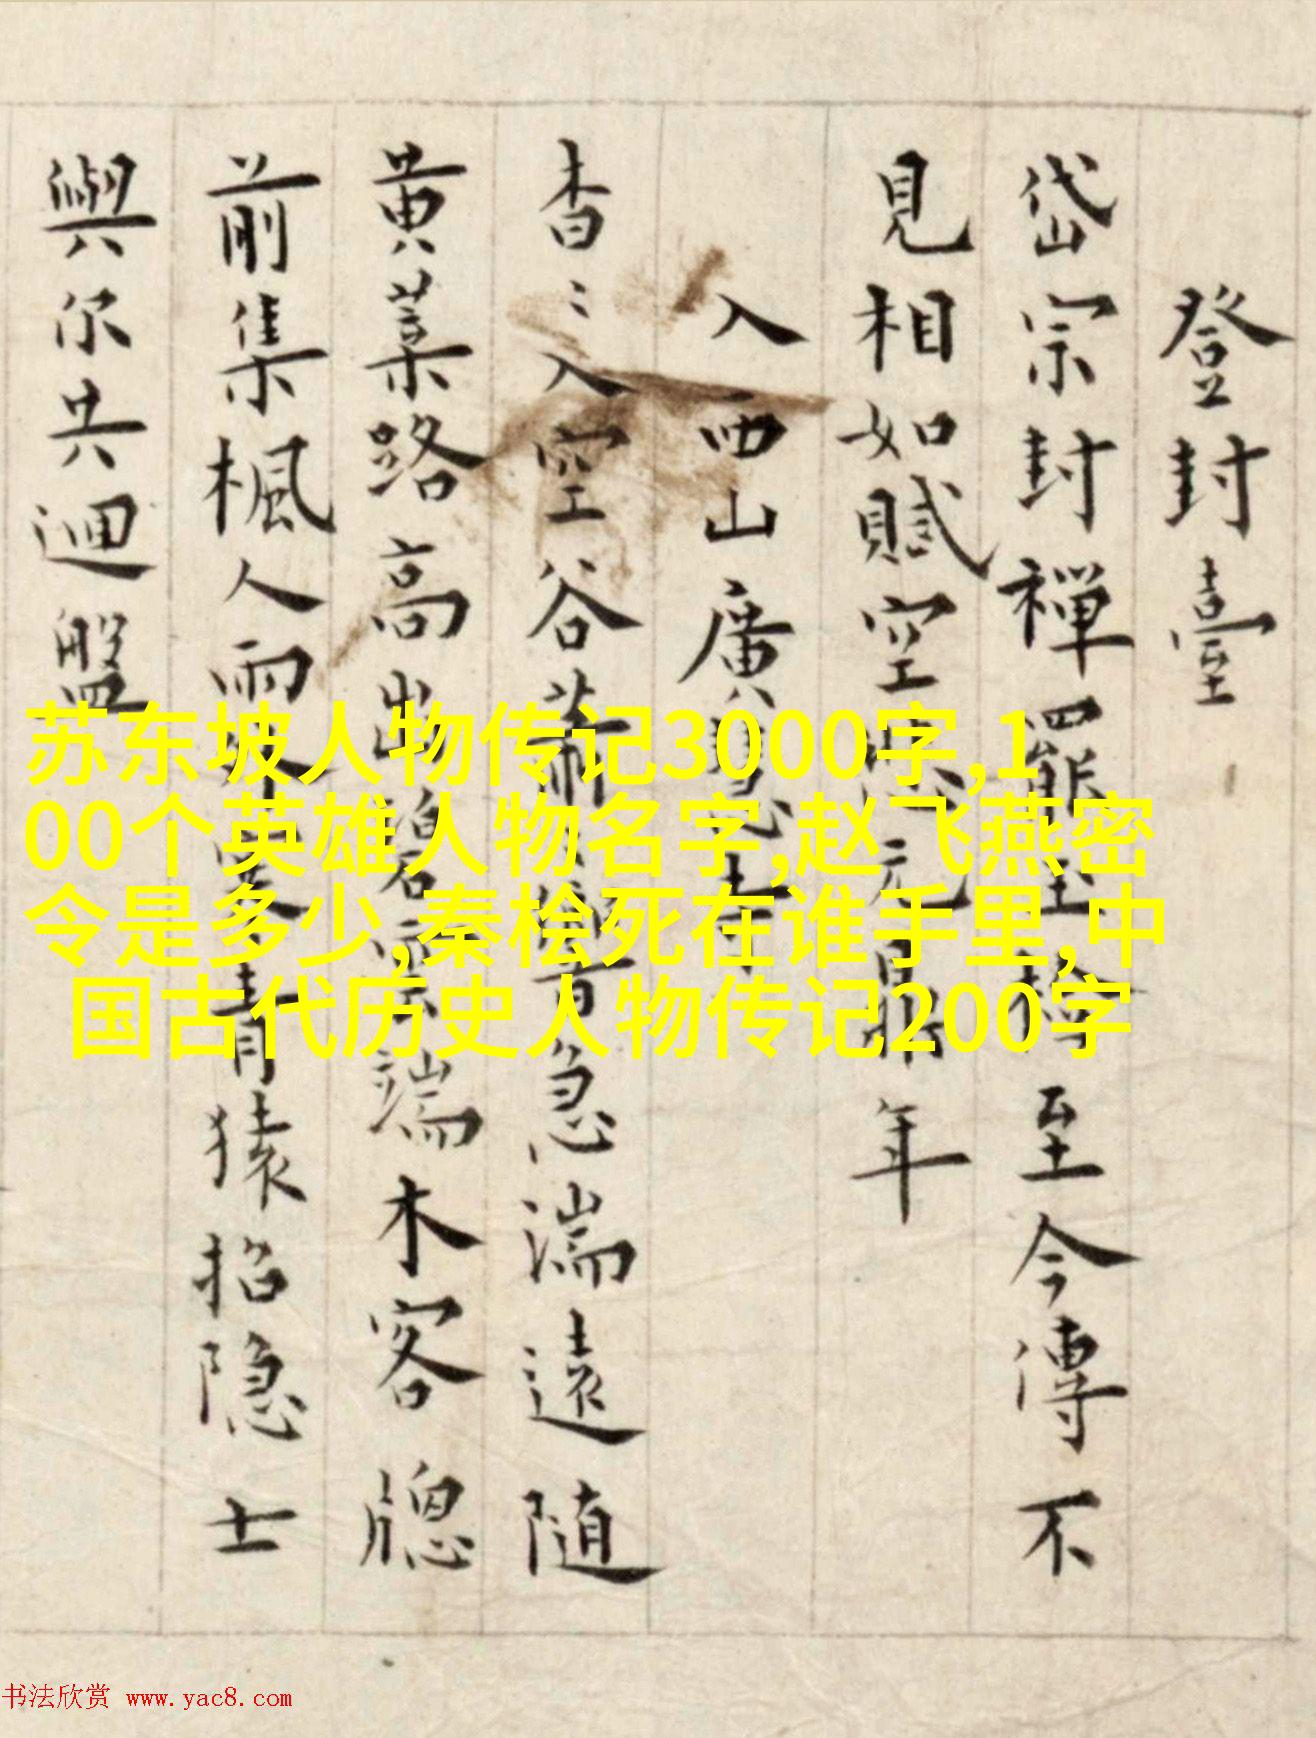 登封臺
岱宗封禪罷至今傳不
見相如賦空元鼎年
入西山廣寺
杳〻入空谷蕭急湍遠隨
黄葉路高出雲端木客牕
前集楓人雨青猿招隐士
與尔共迴盤
苏东坡人物传记3000字,1
00个英雄人物名字,赵飞燕密
令是多少,秦桧死在谁手里,中
国古代历史人物传记200字
书法欣赏 www.yac8.com